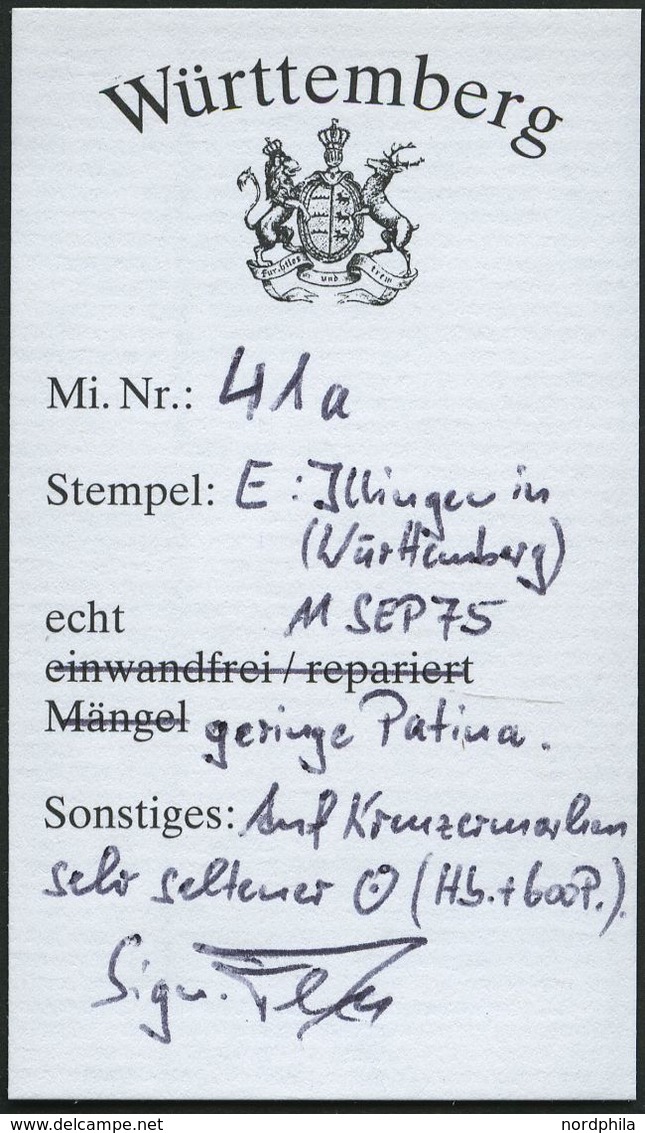 Württemberg
Furchtlos und trew
Mi. Nr.: 41a
Stempel: E: Illingen in
(Württemberg)
echt 11 SEP 75
einwandfrei / repariert
Mängel geringe Patina.
Sonstiges: Auf Kreuzermarken
sehr seltener (Hb. + 600P.).
Sign.
delcampe.net
nordphila